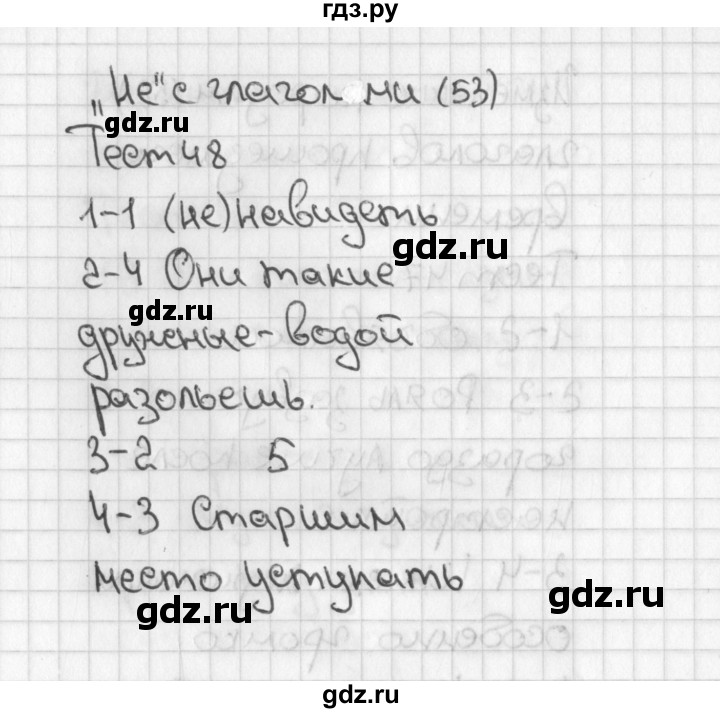 гдз.ру
„Не" с глаголами (53)
gdz.ru
Тест 48
1-1 (не)навидеть
gdz.ru
2-4 Они такие
gdz.ru
дружные - водой
разольешь.
3-2 5
4-3 Старшим
место уступать
gdz.ru
gdz.ru
gdz.ru